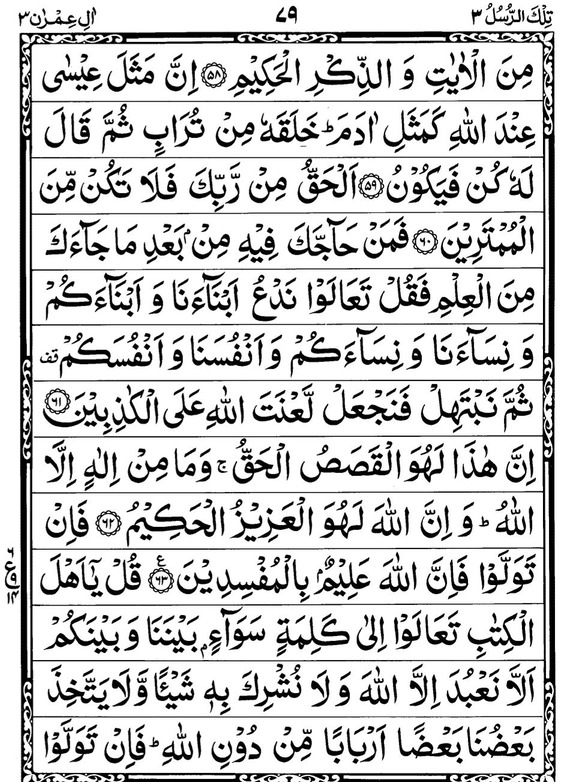 تِلْكَ الرُّسُلُ ٣ ٧٩ اٰلِ عِمْرٰن ٣
مِنَ الْاٰيٰتِ وَ الذِّكْرِ الْحَكِيْمِ ﴿٥٨﴾ اِنَّ مَثَلَ عِيْسٰى
عِنْدَ اللّٰهِ كَمَثَلِ اٰدَمَ ؕ خَلَقَهٗ مِنْ تُرَابٍ ثُمَّ قَالَ
لَهٗ كُنْ فَيَكُوْنُ ﴿٥٩﴾ اَلْحَقُّ مِنْ رَّبِّكَ فَلَا تَكُنْ مِّنَ
الْمُمْتَرِيْنَ ﴿٦٠﴾ فَمَنْ حَآجَّكَ فِيْهِ مِنْۢ بَعْدِ مَا جَآءَكَ
مِنَ الْعِلْمِ فَقُلْ تَعَالَوْا نَدْعُ اَبْنَآءَنَا وَ اَبْنَآءَكُمْ
وَ نِسَآءَنَا وَ نِسَآءَكُمْ وَ اَنْفُسَنَا وَ اَنْفُسَكُمْ قف
ثُمَّ نَبْتَهِلْ فَنَجْعَلْ لَّعْنَتَ اللّٰهِ عَلَى الْكٰذِبِيْنَ ﴿٦١﴾
اِنَّ هٰذَا لَهُوَ الْقَصَصُ الْحَقُّ ۚ وَ مَا مِنْ اِلٰهٍ اِلَّا
اللّٰهُ ؕ وَ اِنَّ اللّٰهَ لَهُوَ الْعَزِيْزُ الْحَكِيْمُ ﴿٦٢﴾ فَاِنْ
تَوَلَّوْا فَاِنَّ اللّٰهَ عَلِيْمٌۢ بِالْمُفْسِدِيْنَ ﴿٦٣﴾ ع قُلْ يٰۤاَهْلَ
الْكِتٰبِ تَعَالَوْا اِلٰى كَلِمَةٍ سَوَآءٍۭ بَيْنَنَا وَ بَيْنَكُمْ
اَلَّا نَعْبُدَ اِلَّا اللّٰهَ وَ لَا نُشْرِكَ بِهٖ شَيْـًٔا وَّ لَا يَتَّخِذَ
بَعْضُنَا بَعْضًا اَرْبَابًا مِّنْ دُوْنِ اللّٰهِ ؕ فَاِنْ تَوَلَّوْا